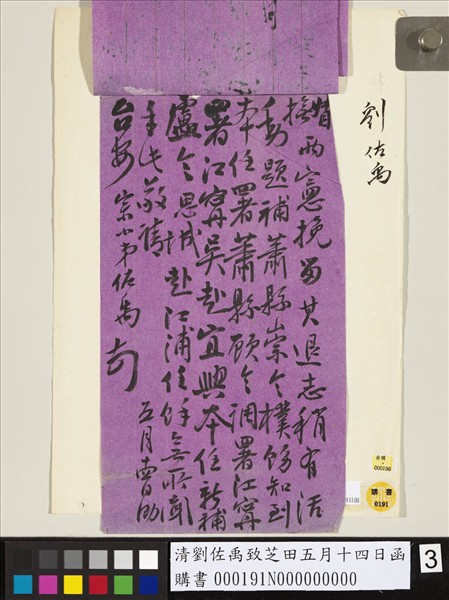 劉佐禹
督撫兩憲挽留其退志稍有活
動題補蕭縣崇令樸飭知到
本任署蕭縣顧令調署江甯
署江甯吳赴宜興本任新補
盧令思誠赴江浦任餘無所聞
手此敬請
台安 宗小弟佐禹 頓首
五月
000196
購書
0191
清劉佐禹致芝田五月十四日函
購書 000191N000000000
3